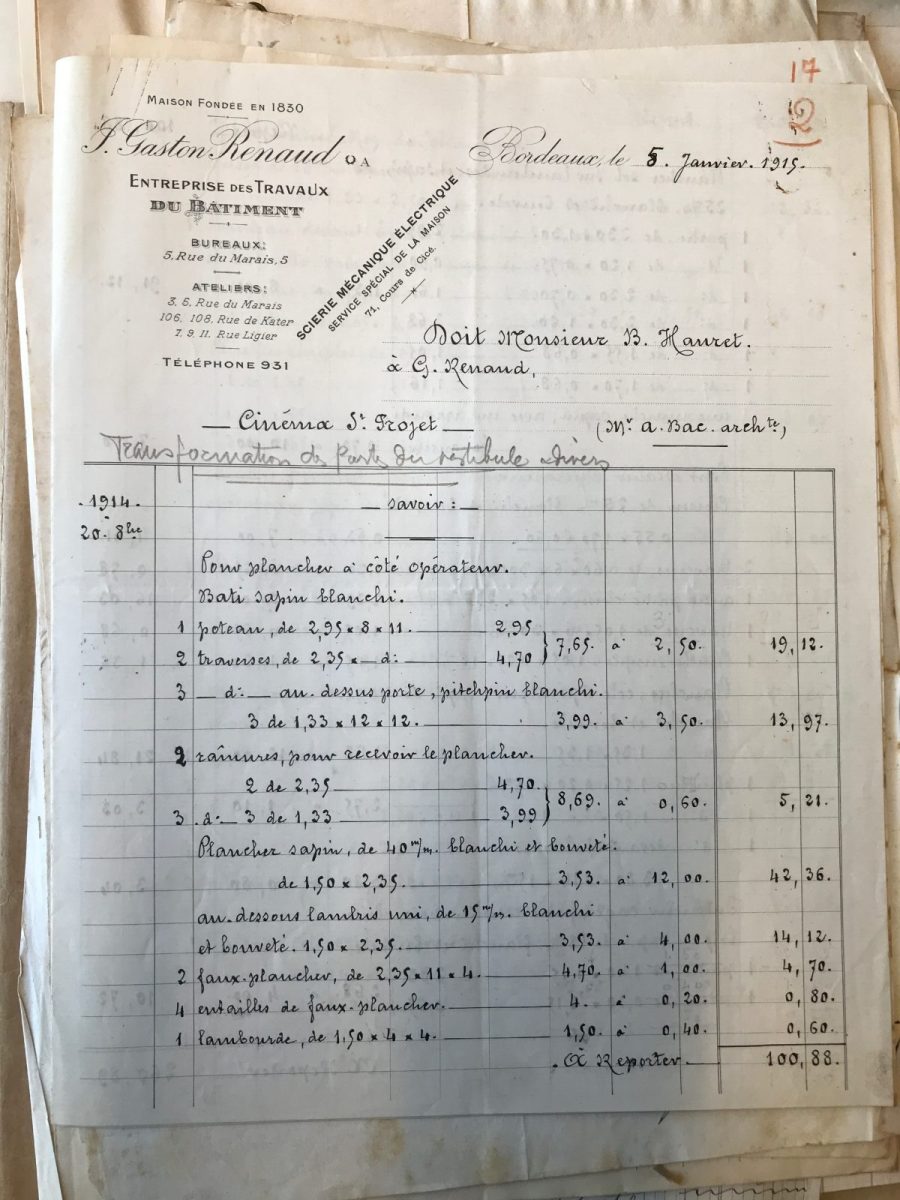 17
2
MAISON FONDÉE EN 1830
J. Gaston Renaud O A
ENTREPRISE DES TRAVAUX
DU BÂTIMENT
BUREAUX:
5, Rue du Marais, 5
ATELIERS:
3, 5, Rue du Marais
106, 108, Rue de Kater
7, 9, 11, Rue Ligier
TÉLÉPHONE 931
SCIERIE MÉCANIQUE ÉLECTRIQUE
SERVICE SPÉCIAL DE LA MAISON
71, Cours de Cicé.
Bordeaux, le 5 Janvier 1915.
Doit Monsieur B. Hauret.
à G. Renaud,
— Cinéma St Projet — (Mr A. Bac. archte)
Transformation des Portes du vestibule & divers
1914. — savoir : —
20. 8bre
Pour plancher à côté opérateur.
Bati sapin blanchi.
1 poteau, de 2,95 × 8 × 11. — 2,95
2 traverses, de 2,35 × — d: — 4,70 } 7,65. à 2,50. 19,12.
3 — d: — au-dessus porte, pitchpin blanchi.
3 de 1,33 × 12 × 12. — 3,99. à 3,50. 13,97.
2 raînures, pour recevoir le plancher.
2 de 2,35 — 4,70
3 . d: — 3 de 1,33 — 3,99 } 8,69. à 0,60. 5,21.
Plancher sapin, de 40 m/m. blanchi et bouveté.
de 1,50 × 2,35. — 3,53. à 12,00. 42,36.
au-dessous lambris uni, de 15 m/m. blanchi
et bouveté. 1,50 × 2,35. — 3,53. à 4,00. 14,12.
2 faux-plancher, de 2,35 × 11 × 4. — 4,70. à 1,00. 4,70.
4 entailles de faux-plancher. — 4. à 0,20. 0,80.
1 lambourde, de 1,50 × 4 × 4. — 1,50. à 0,40. 0,60.
. À Reporter — 100,88.